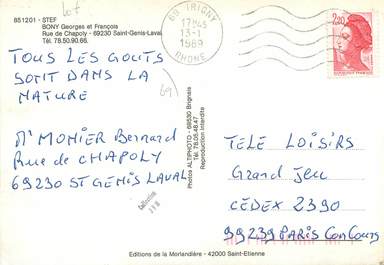 lot
851201 - STEF
BONY Georges et François
Rue de Chapoly - 69230 Saint-Genis-Laval
Tél. 78.50.90.66.
69 IRIGNY
17H45
13-1
1989
RHONE
2,20
TOUS LES GOUTS
SONT DANS LA
NATURE
69
Mr MONIER Bernard
Rue de CHAPOLY
69230 ST GENIS LAVAL
Photos ALTIPHOTO - 69530 Brignais
Tél. 78.05.48.47
Reproduction Interdite
TELE LOISIRS
Grand Jeu
CEDEX 2390
99239 PARIS CONCOURS
Editions de la Morlandière - 42000 Saint-Etienne